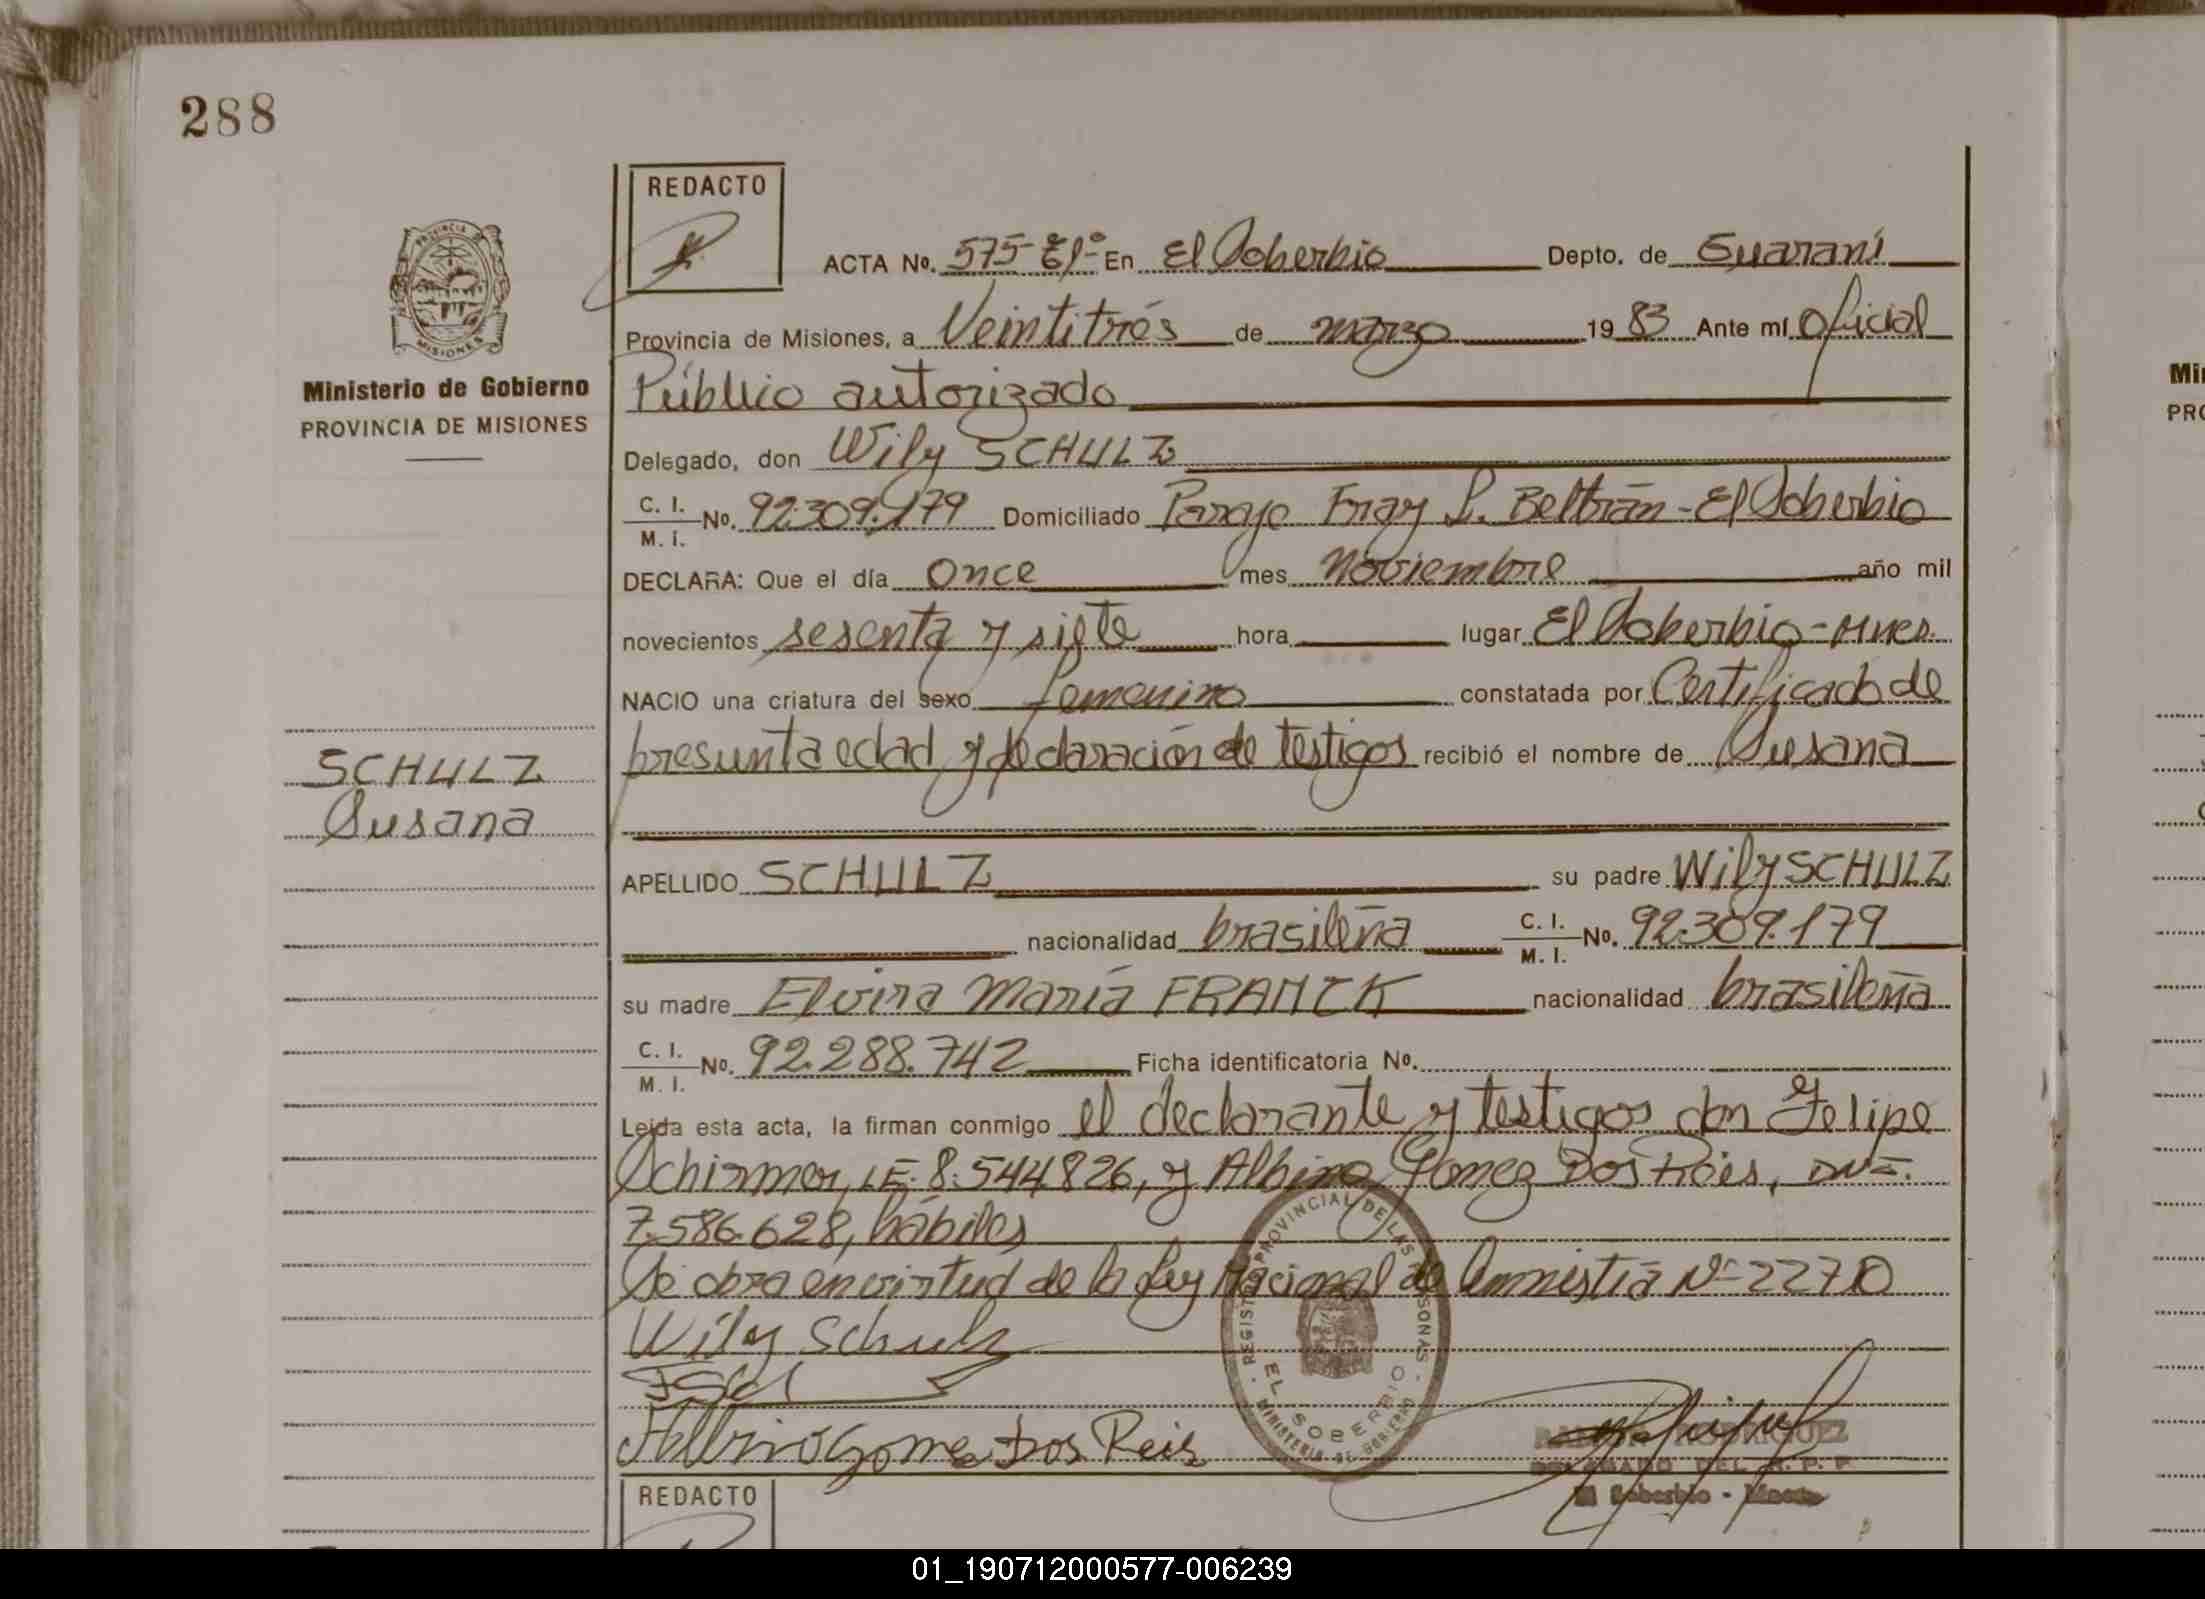 288
REDACTO
ACTA No. 575- Eº- En El Soberbio Depto. de Guaraní
Provincia de Misiones, a Veintitrés de marzo 19 83 Ante mí Oficial
Público autorizado
Ministerio de Gobierno
PROVINCIA DE MISIONES
Delegado, don Wily SCHULZ
C. I. M. I. No. 92.309.179 Domiciliado Paraje Fray L. Beltrán - El Soberbio
DECLARA: Que el día Once mes noviembre año mil
novecientos sesenta y siete hora lugar El Soberbio - Mnes.
NACIO una criatura del sexo femenino constatada por Certificado de
presunta edad y declaración de testigos recibió el nombre de Susana
SCHULZ
Susana
APELLIDO SCHULZ su padre Wily SCHULZ
nacionalidad brasileña C. I. M. I. No. 92.309.179
su madre Elvira María FRANCK nacionalidad brasileña
C. I. M. I. No. 92.288.742 Ficha identificatoria No.
Leída esta acta, la firman conmigo el declarante y testigos don Felipe
Schirmer, LE. 8.544826, y Albino Gomez Dos Reis,
7.586.628, hábiles
Se obra en virtud de la Ley Nacional de Amnistía Nº 22710
Wily Schulz
Albino Gome Dos Reis
REGISTRO PROVINCIAL DE LAS PERSONAS
EL SOBERBIO
MINISTERIO DE GOBIERNO
RODRIGUEZ
DELEGADO DEL R. P. P.
El Soberbio -
REDACTO
01_190712000577-006239